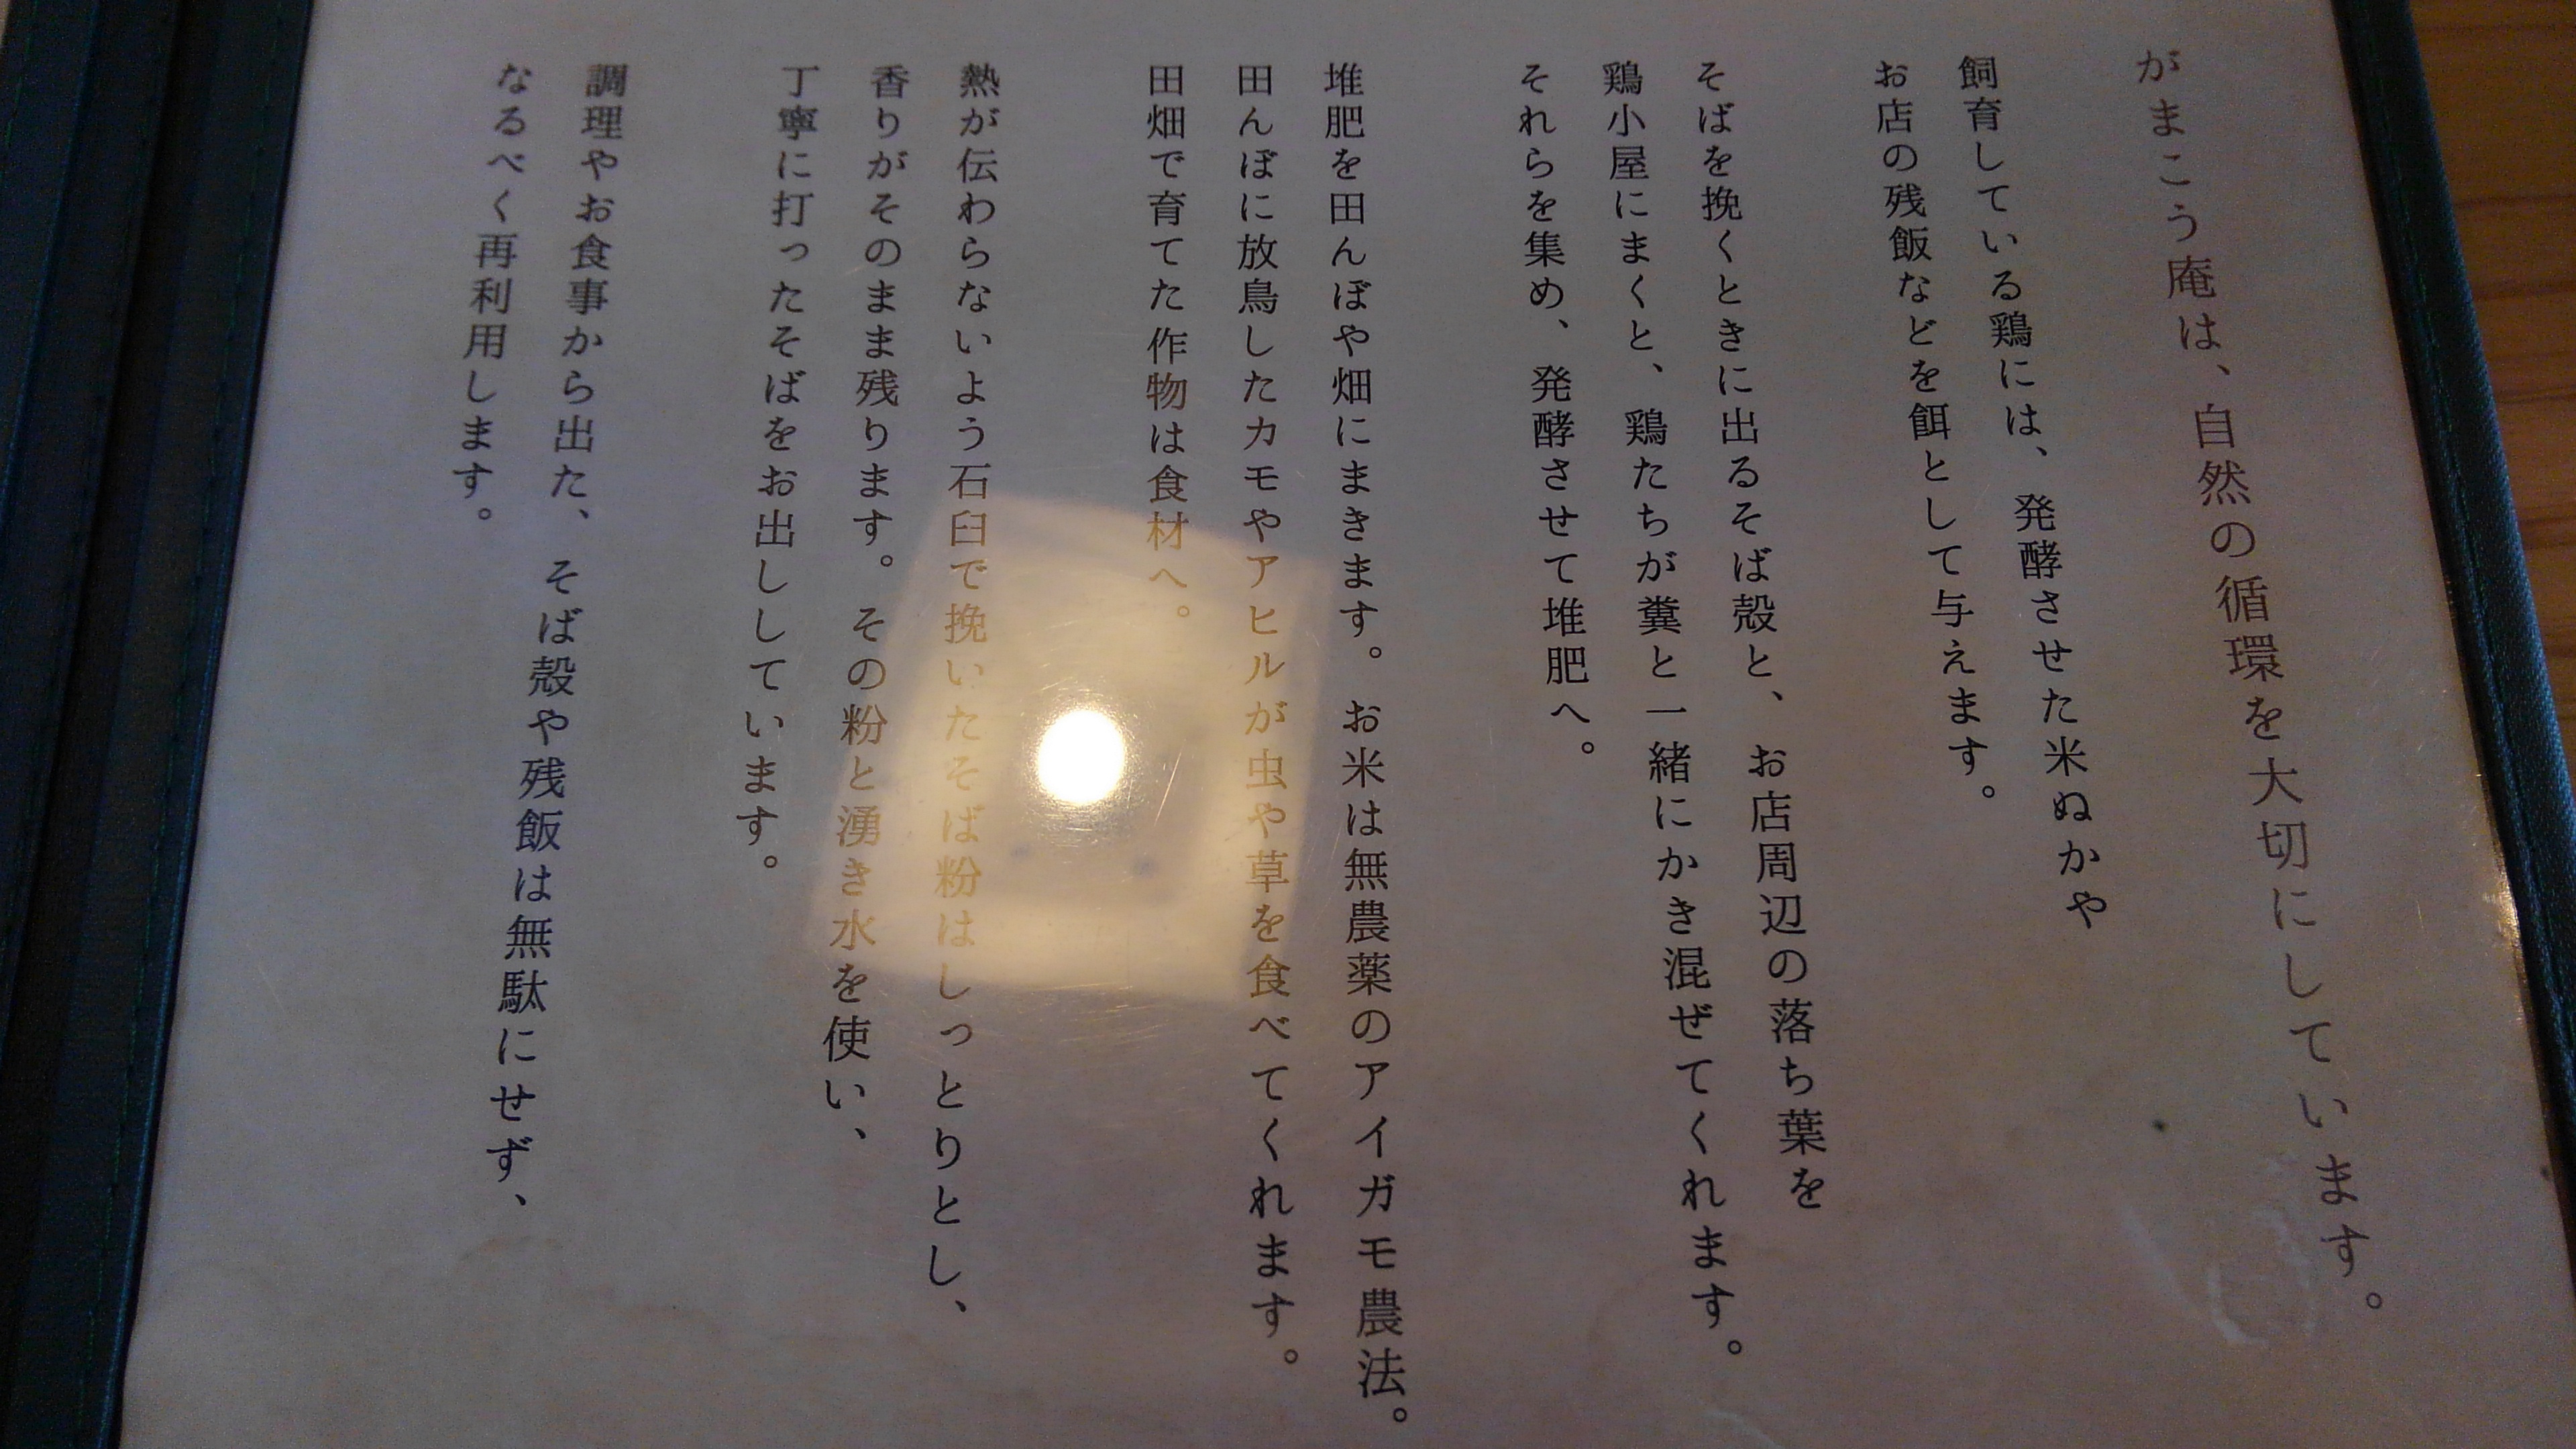 がまこう庵は、自然の循環を大切にしています。
飼育している鶏には、発酵させた米ぬかや
お店の残飯などを餌として与えます。
そばを挽くときに出るそば殻と、お店周辺の落ち葉を
鶏小屋にまくと、鶏たちが糞と一緒にかき混ぜてくれます。
それらを集め、発酵させて堆肥へ。
堆肥を田んぼや畑にまきます。お米は無農薬のアイガモ農法。
田んぼに放鳥したカモやアヒルが虫や草を食べてくれます。
田畑で育てた作物は食材へ。
熱が伝わらないよう石臼で挽いたそば粉はしっとりとし、
香りがそのまま残ります。その粉と湧き水を使い、
丁寧に打ったそばをお出ししています。
調理やお食事から出た、そば殻や残飯は無駄にせず、
なるべく再利用します。